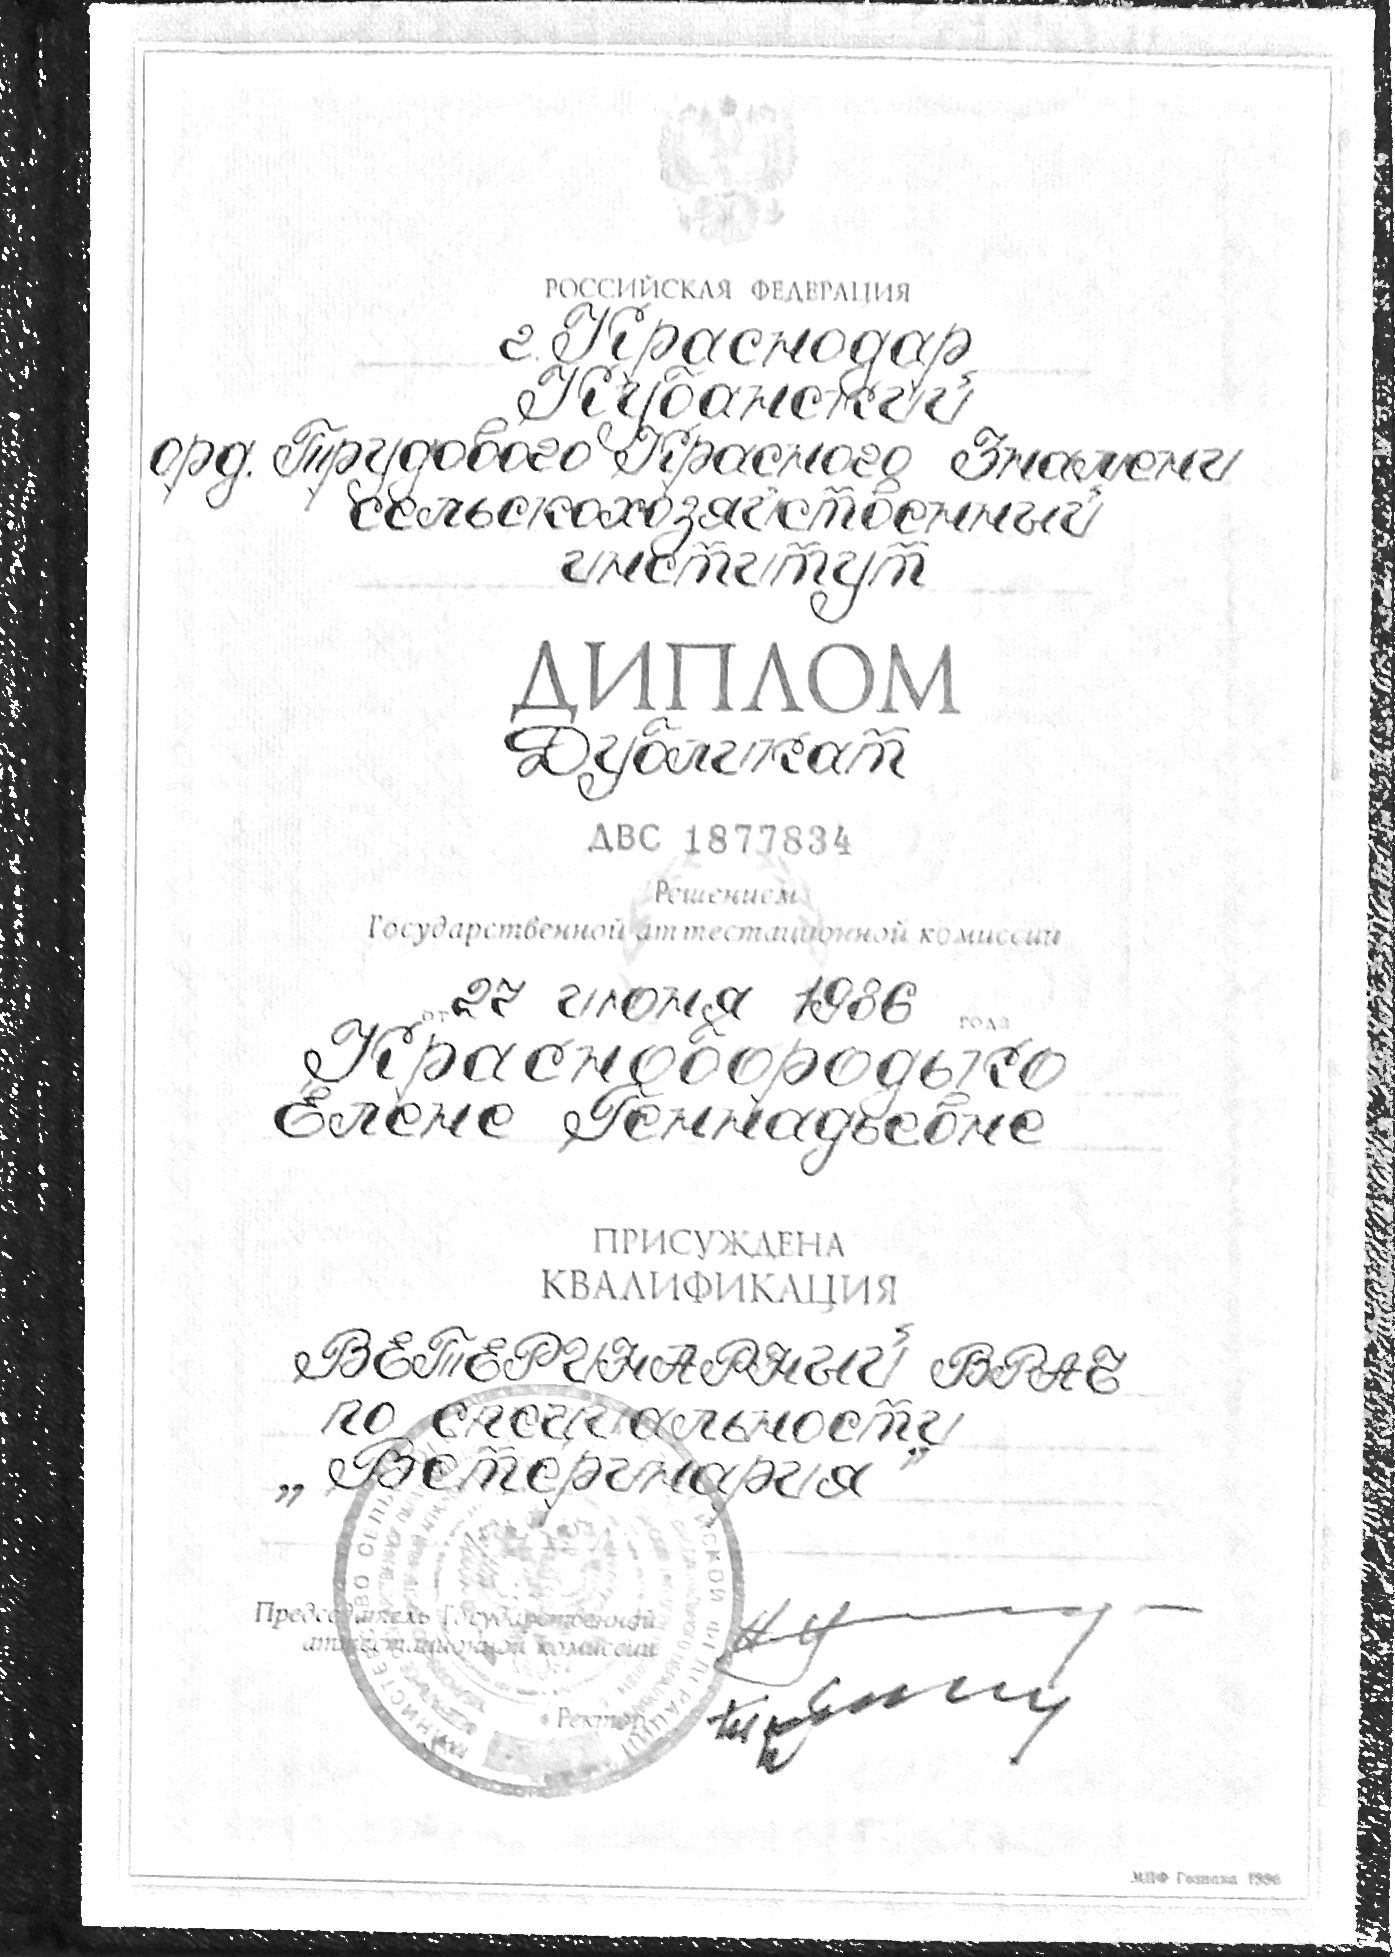 РОССИЙСКАЯ ФЕДЕРАЦИЯ
г. Краснодар
Кубанский
орд. Трудового Красного Знамени
сельскохозяйственный
институт
ДИПЛОМ
Дубликат
ДВС 1877834
Решением
Государственной аттестационной комиссии
от 27 июня 1986 года
Краснобородько
Елене Геннадьевне
ПРИСУЖДЕНА
КВАЛИФИКАЦИЯ
ВЕТЕРИНАРНЫЙ ВРАЧ
по специальности
„Ветеринария”
Председатель Государственной
аттестационной комиссии
Ректор
МПФ Гознака 1996